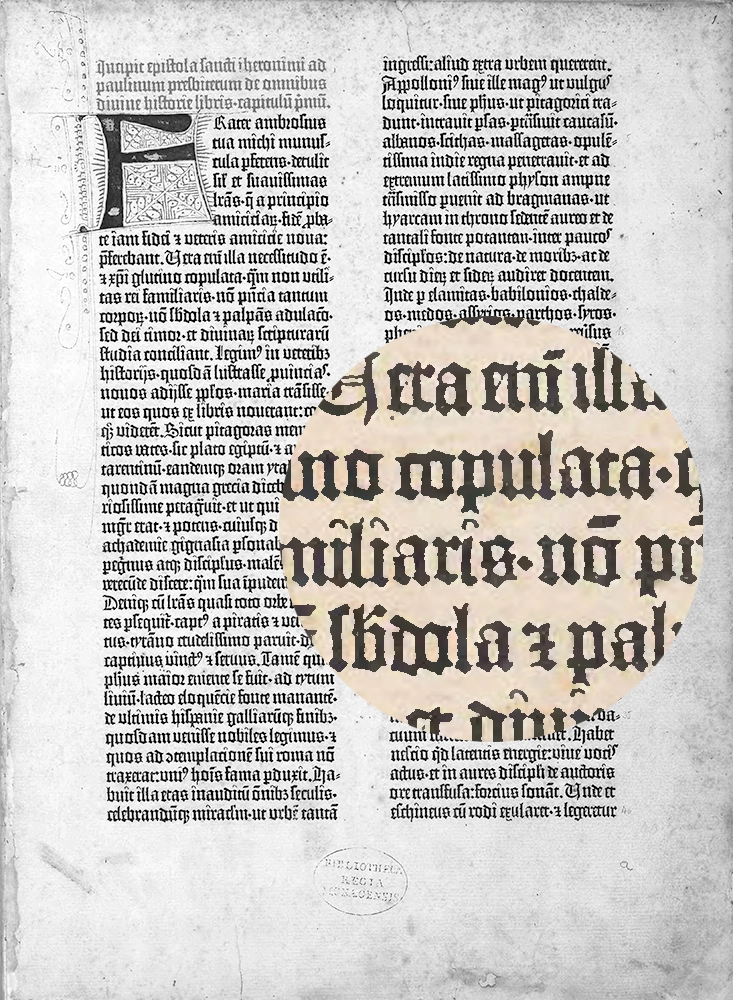 Incipit epistola sancti iheronimi ad
paulinum presbiterum de omnibus
divine historie libris·capitulū pmū.
Frater ambrosius
tua michi munus-
cula pferens·detulit
sil et suavissimas
lrās·q̄ a principio
amiciciaꝝ·fidē pba-
te iam fidei ⁊ veteris amicicie nova:
pferebant. Vera em̄ illa necessitudo ē·
⁊ xpī glutino copulata·qm̄ non utili-
tas rei familiaris·nō pn̄cia tantum
corpoꝝ·nō sbdola ⁊ palpās adulacō·
sed dei timor·et divinaꝝ scripturarū
studia conciliant. Legimꝰ in veteribꝫ
historijs·quosdā lustrasse ꝓuinciaˢ·
novos adijsse pplos·maria trāsisse·
ut eos quos ex libris noverant:
q̄ viderēt. Sicut pitagoras
ticos vates·sic plato egiptū·⁊
tarentinū·eandemqꝫ oram
quondā magna grecia
riosissime pagravit·et ut qui
mgr̄ erat·⁊ potens·cuiusqꝫ
achademie gignasia
pegrinus atqꝫ discipulus·
verecūde discere:qm̄ sua
Deniqꝫ cū lrās quasi toto orbe
tes psequit̄·captꝰ a piratis ⁊
tus·tyrāno crudelissimo paruit·
captivus vinctꝰ ⁊ servus. Tamē
phus maior emente se fuit·ad tytum
liviū·lacteo eloquēcie fonte manantē·
de ultimis hispanie galliarūqꝫ finibꝫ·
quosdam venisse nobiles legimus·⁊
quos ad ɔtemplacionē sui roma nō
traxerat:uniꝰ hoīs fama pduxit. Ha-
buit illa etas inauditū oīnibꝫ seculis·
celebrandūqꝫ miraclm̄·ut urbē tantā
ingressi:aliud extra urbem quererent.
Appolloniꝰ sive ille magꝰ ut vulgꝰ
loquitur·sive phus·ut pitagorici tra-
dunt·intravit psas·ptrāsivit caucasū·
albanos·scithas·massagetas·opulē-
tissima indie regna penetravit·et ad
extremum latissimo physon ampne
trāsmisso puenit ad bragmanas·ut
hyarcam in throno sedentē aureo et de
tantali fonte potantem·inter paucoˢ
discipulos:de natura·de moribꝫ·ac de
cursu dieꝝ et sideꝝ audiret docentem.
Inde p elamitas·babilonios·chalde-
os·medos·assyrios·parthos·syros·
Vera em̄ illa
ino copulata·q
miliaris·nō pn̄
sbdola ⁊ pal
et divi
Habet
nescio qd latentis energie:vive vociˢ
actus·et in aures discipli de auctoris
ore transfusa:forcius sonāt. Vnde et
eschineus cū rodi exularet·⁊ legeretur
BIBLIOTHECA
REGIA
MONACENSIS